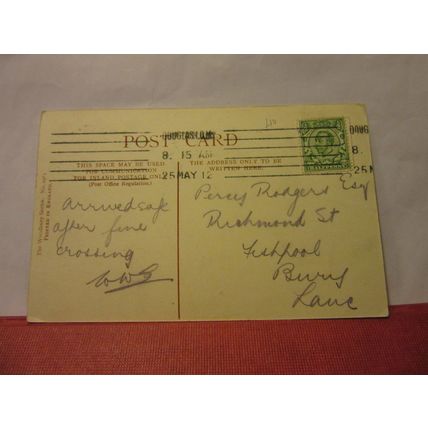 POST CARD
THIS SPACE MAY BE USED
FOR COMMUNICATION
FOR INLAND POSTAGE ONLY
(Post Office Regulation.)
THE ADDRESS ONLY TO BE
WRITTEN HERE.
DOUGLAS I.O.M.
8. 15 AM
25 MAY 12
DOUG
8.
25 M
The Woodbury Series.
PRINTED IN ENGLAND.
Arrived safe
after fine
crossing
WWG
Percy Rodgers Esq
Richmond St
Fishpool
Bury
Lanc